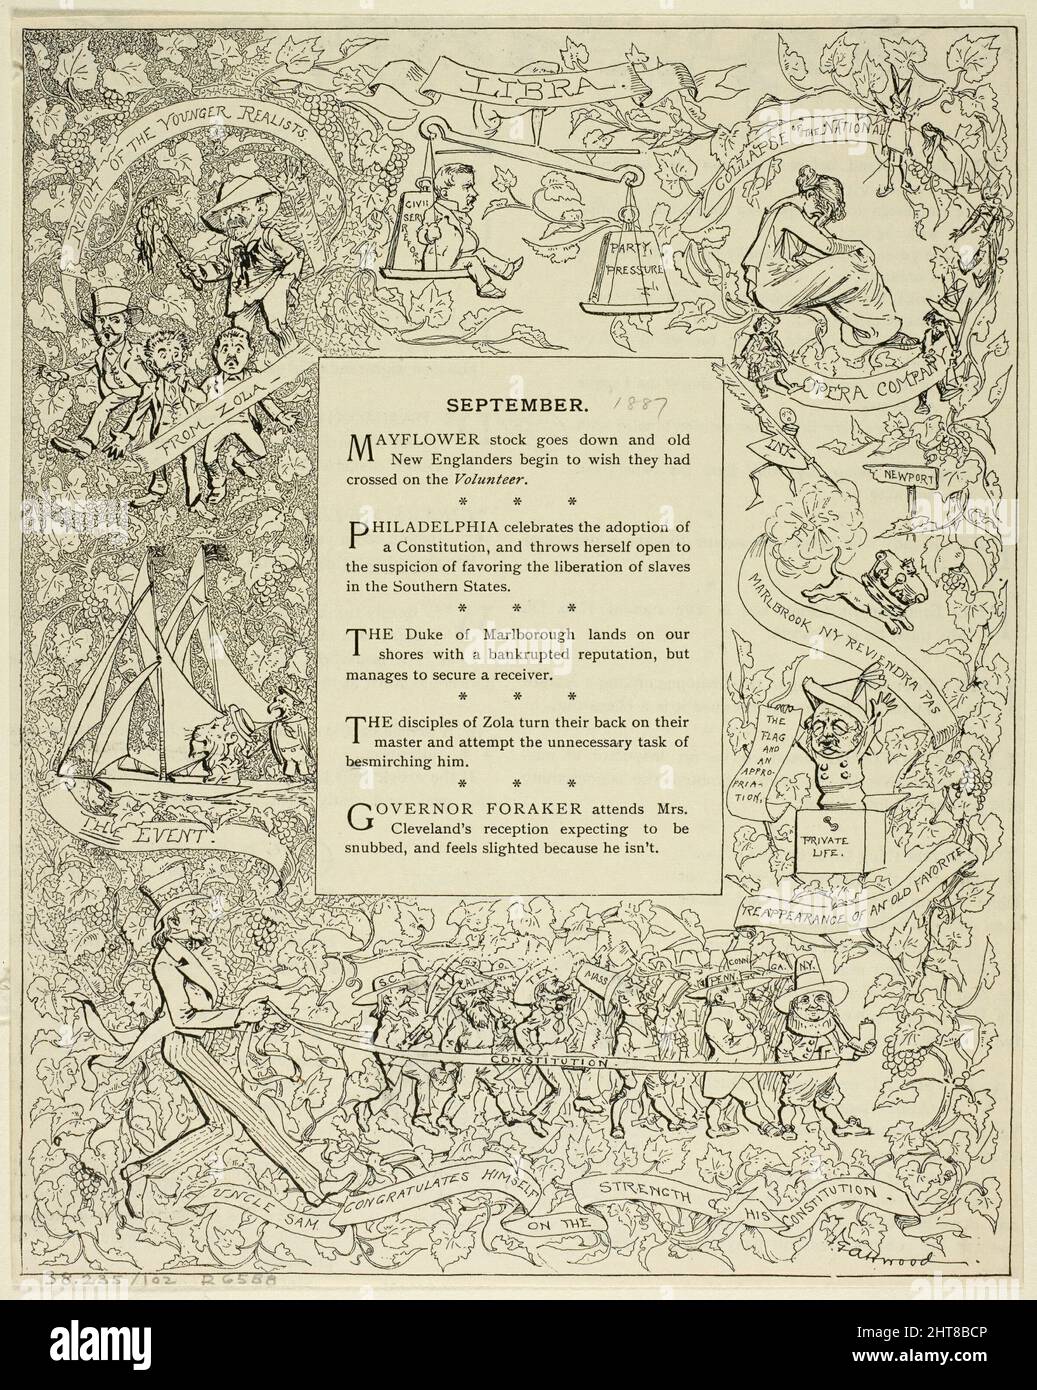 LIBRA.
REVOLT OF THE YOUNGER REALISTS
FROM ZOLA.
CIVIL
SERV
PARTY
PRESSURE
COLLAPSE OF THE NATIONAL
OPERA COMPANY
SEPTEMBER. 1887
MAYFLOWER stock goes down and old
New Englanders begin to wish they had
crossed on the Volunteer.
* * *
PHILADELPHIA celebrates the adoption of
a Constitution, and throws herself open to
the suspicion of favoring the liberation of slaves
in the Southern States.
* * *
THE Duke of Marlborough lands on our
shores with a bankrupted reputation, but
manages to secure a receiver.
* * *
THE disciples of Zola turn their back on their
master and attempt the unnecessary task of
besmirching him.
* * *
GOVERNOR FORAKER attends Mrs.
Cleveland's reception expecting to be
snubbed, and feels slighted because he isn't.
INK
NEWPORT
MARLBROOK NY REVIENDRA PAS
THE
FLAG
AND
AN
APPRO-
PRIA-
TION,
PRIVATE
LIFE.
REAPPEARANCE OF AN OLD FAVORITE
THE EVENT.
S.C.
MASS
VA
PENN
CONN
GA.
N.Y.
CONSTITUTION
UNCLE SAM CONGRATULATES HIMSELF
ON THE
STRENGTH
HIS CONSTITUTION.
F.G. Attwood
38.235/102 R6558
alamy
Image ID: 2HT8BCP
www.alamy.com